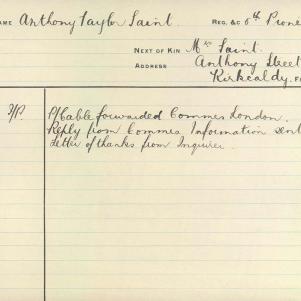 AME Anthony Taylor Saint. REG. &C 5th Pione
NEXT OF KIN Mrs Saint.
ADDRESS Anthony Street
Kirkcaldy. F
7/P. P/Cable forwarded Commes London.
Reply from Commes Information sent
Letter of thanks from Inquirer.